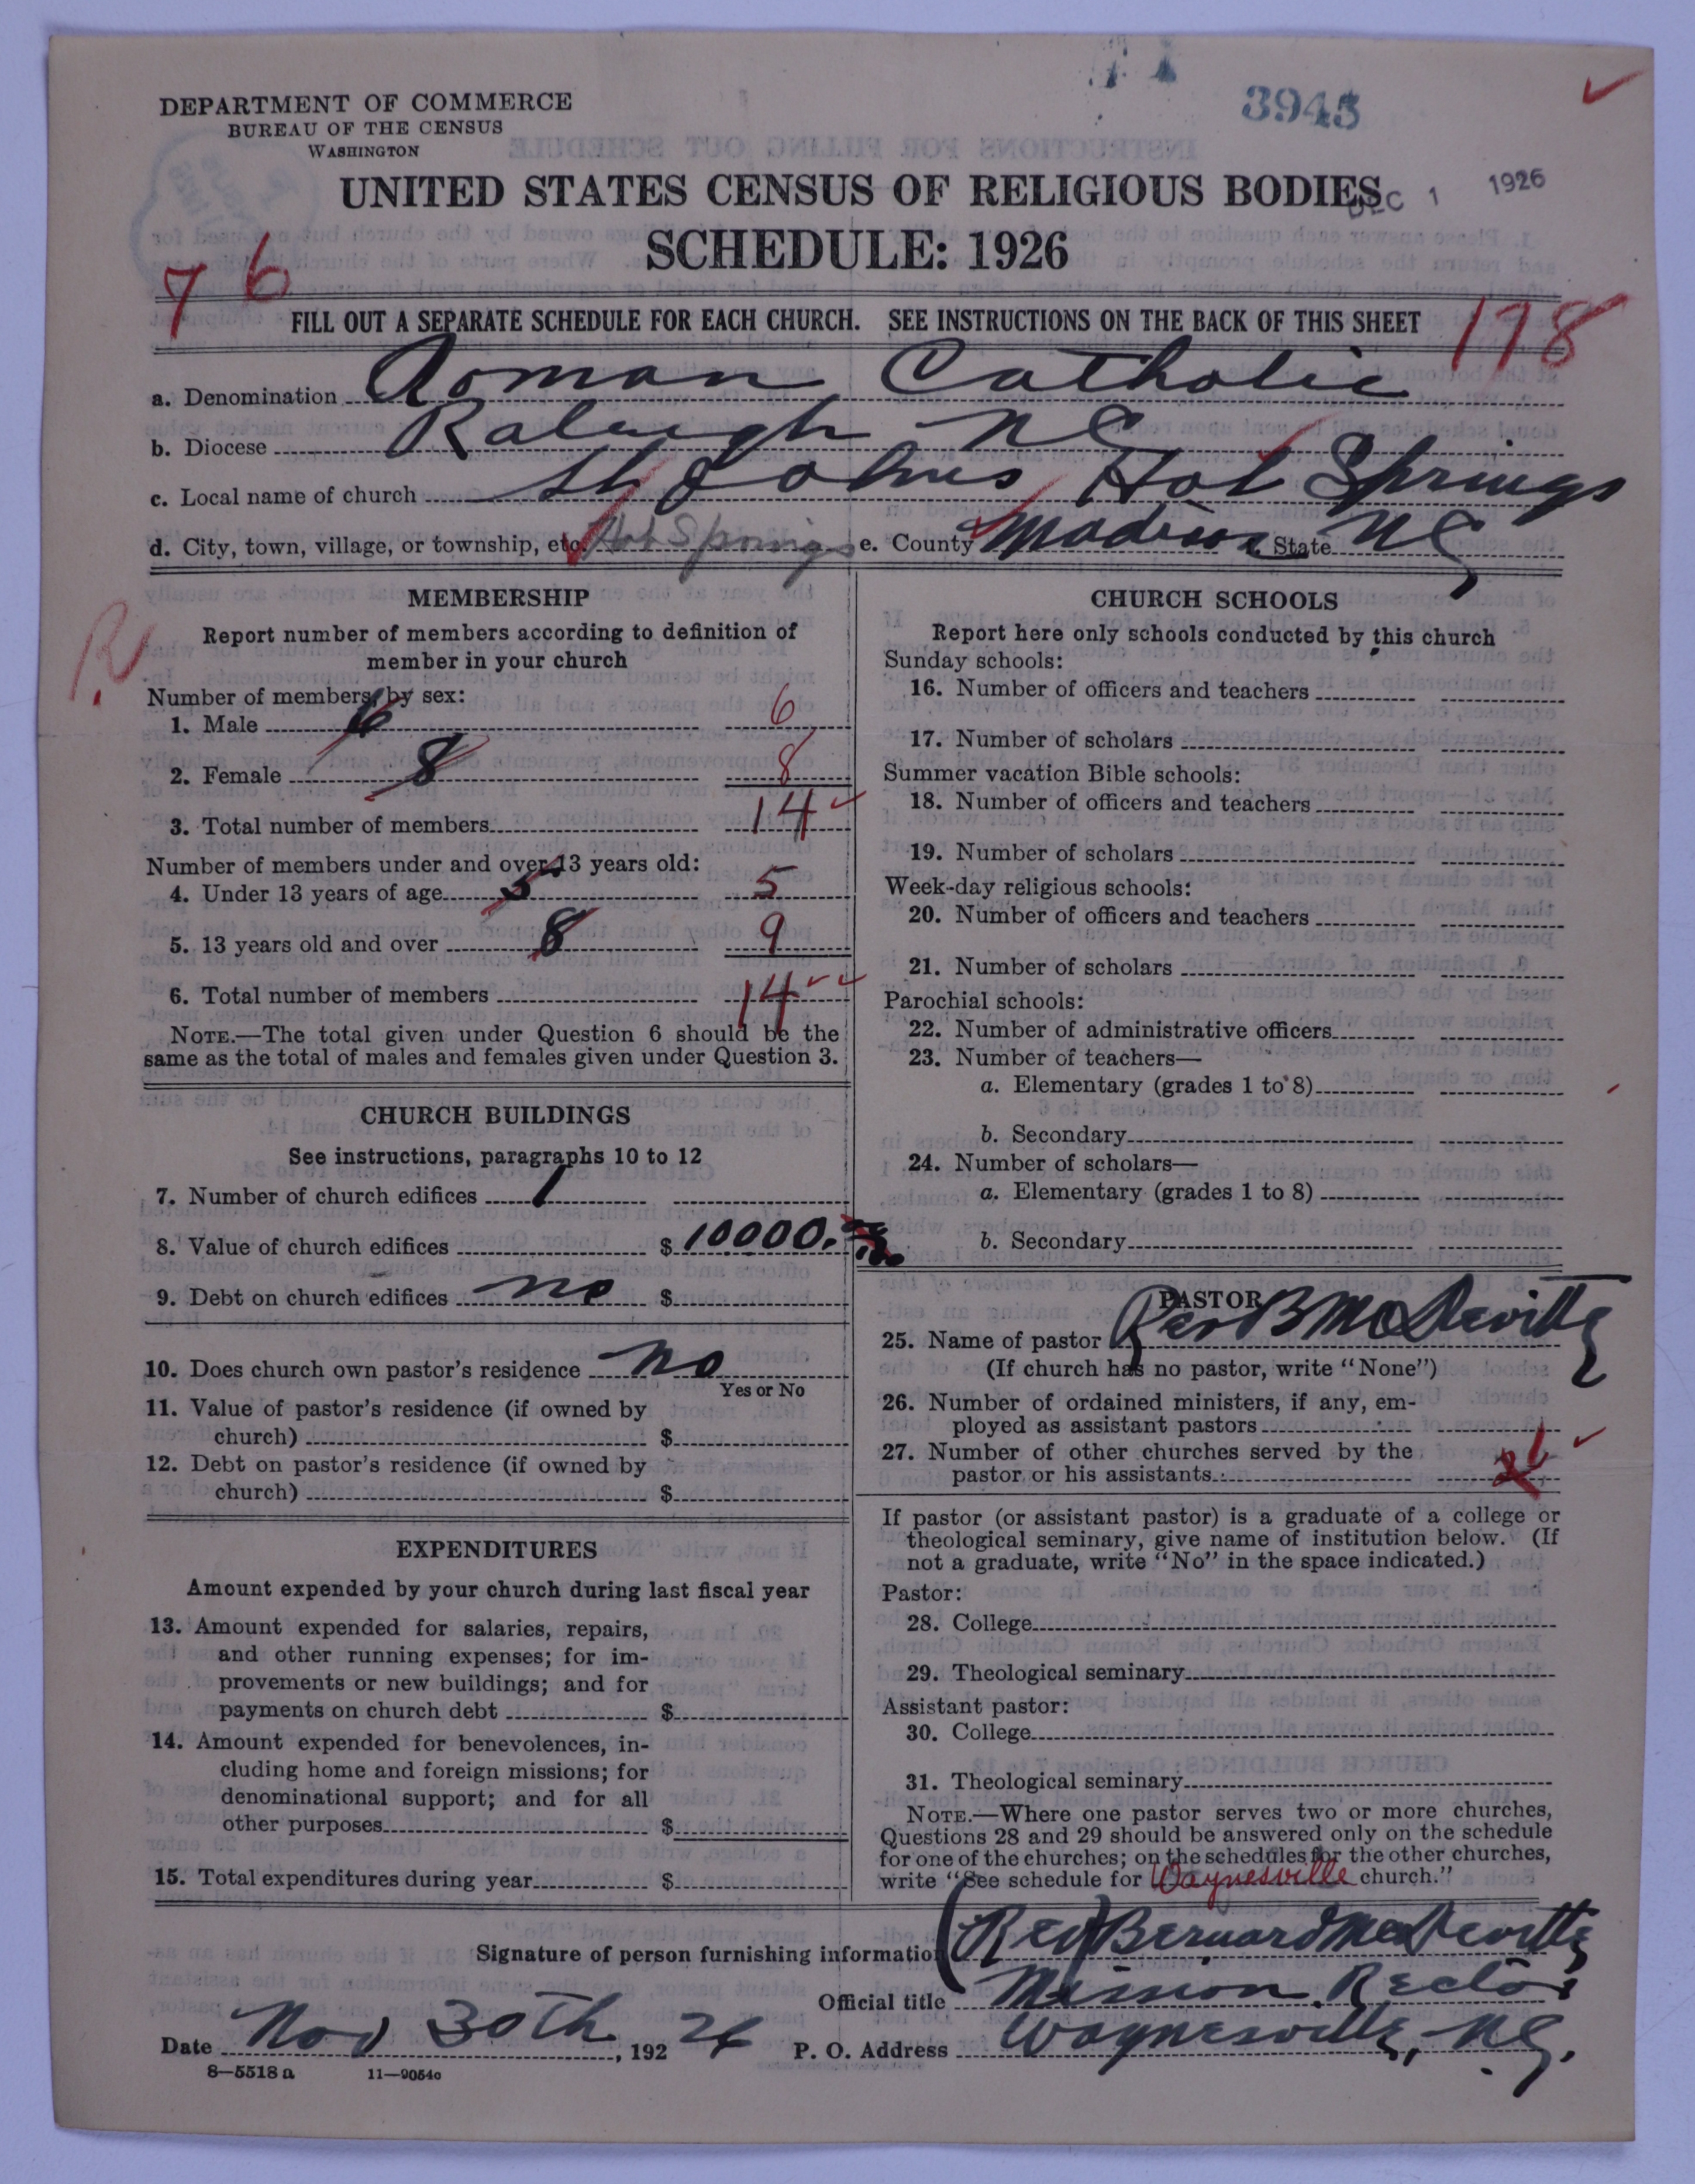 3945
DEPARTMENT OF COMMERCE
BUREAU OF THE CENSUS
WASHINGTON
UNITED STATES CENSUS OF RELIGIOUS BODIES
DEC 1 1926
SCHEDULE: 1926
7 6
FILL OUT A SEPARATE SCHEDULE FOR EACH CHURCH. SEE INSTRUCTIONS ON THE BACK OF THIS SHEET
178
a. Denomination Roman Catholic
b. Diocese Raleigh NC
c. Local name of church St Johns Hot Springs
d. City, town, village, or township, etc. Hot Springs e. County Madison f. State NC
R
MEMBERSHIP
Report number of members according to definition of
member in your church
Number of members, by sex:
1. Male 6 6
2. Female 8 8
3. Total number of members 14
Number of members under and over 13 years old:
4. Under 13 years of age 5 5
5. 13 years old and over 8 9
6. Total number of members 14
NOTE.—The total given under Question 6 should be the
same as the total of males and females given under Question 3.
CHURCH BUILDINGS
See instructions, paragraphs 10 to 12
7. Number of church edifices 1
8. Value of church edifices $ 10000.
9. Debt on church edifices no $
10. Does church own pastor's residence no
Yes or No
11. Value of pastor's residence (if owned by
church) $
12. Debt on pastor's residence (if owned by
church) $
EXPENDITURES
Amount expended by your church during last fiscal year
13. Amount expended for salaries, repairs,
and other running expenses; for im-
provements or new buildings; and for
payments on church debt $
14. Amount expended for benevolences, in-
cluding home and foreign missions; for
denominational support; and for all
other purposes $
15. Total expenditures during year $
CHURCH SCHOOLS
Report here only schools conducted by this church
Sunday schools:
16. Number of officers and teachers
17. Number of scholars
Summer vacation Bible schools:
18. Number of officers and teachers
19. Number of scholars
Week-day religious schools:
20. Number of officers and teachers
21. Number of scholars
Parochial schools:
22. Number of administrative officers
23. Number of teachers—
a. Elementary (grades 1 to 8)
b. Secondary
24. Number of scholars—
a. Elementary (grades 1 to 8)
b. Secondary
PASTOR
25. Name of pastor Rev B McDevitt
(If church has no pastor, write "None")
26. Number of ordained ministers, if any, em-
ployed as assistant pastors
27. Number of other churches served by the
pastor or his assistants
If pastor (or assistant pastor) is a graduate of a college or
theological seminary, give name of institution below. (If
not a graduate, write "No" in the space indicated.)
Pastor:
28. College
29. Theological seminary
Assistant pastor:
30. College
31. Theological seminary
NOTE.—Where one pastor serves two or more churches,
Questions 28 and 29 should be answered only on the schedule
for one of the churches; on the schedules for the other churches,
write "See schedule for Waynesville church."
Signature of person furnishing information (Rev) Bernard McDevitt
Official title Mission Rector
Date Nov 30th, 1926 P. O. Address Waynesville, NC.
8—5518 a 11—9054c